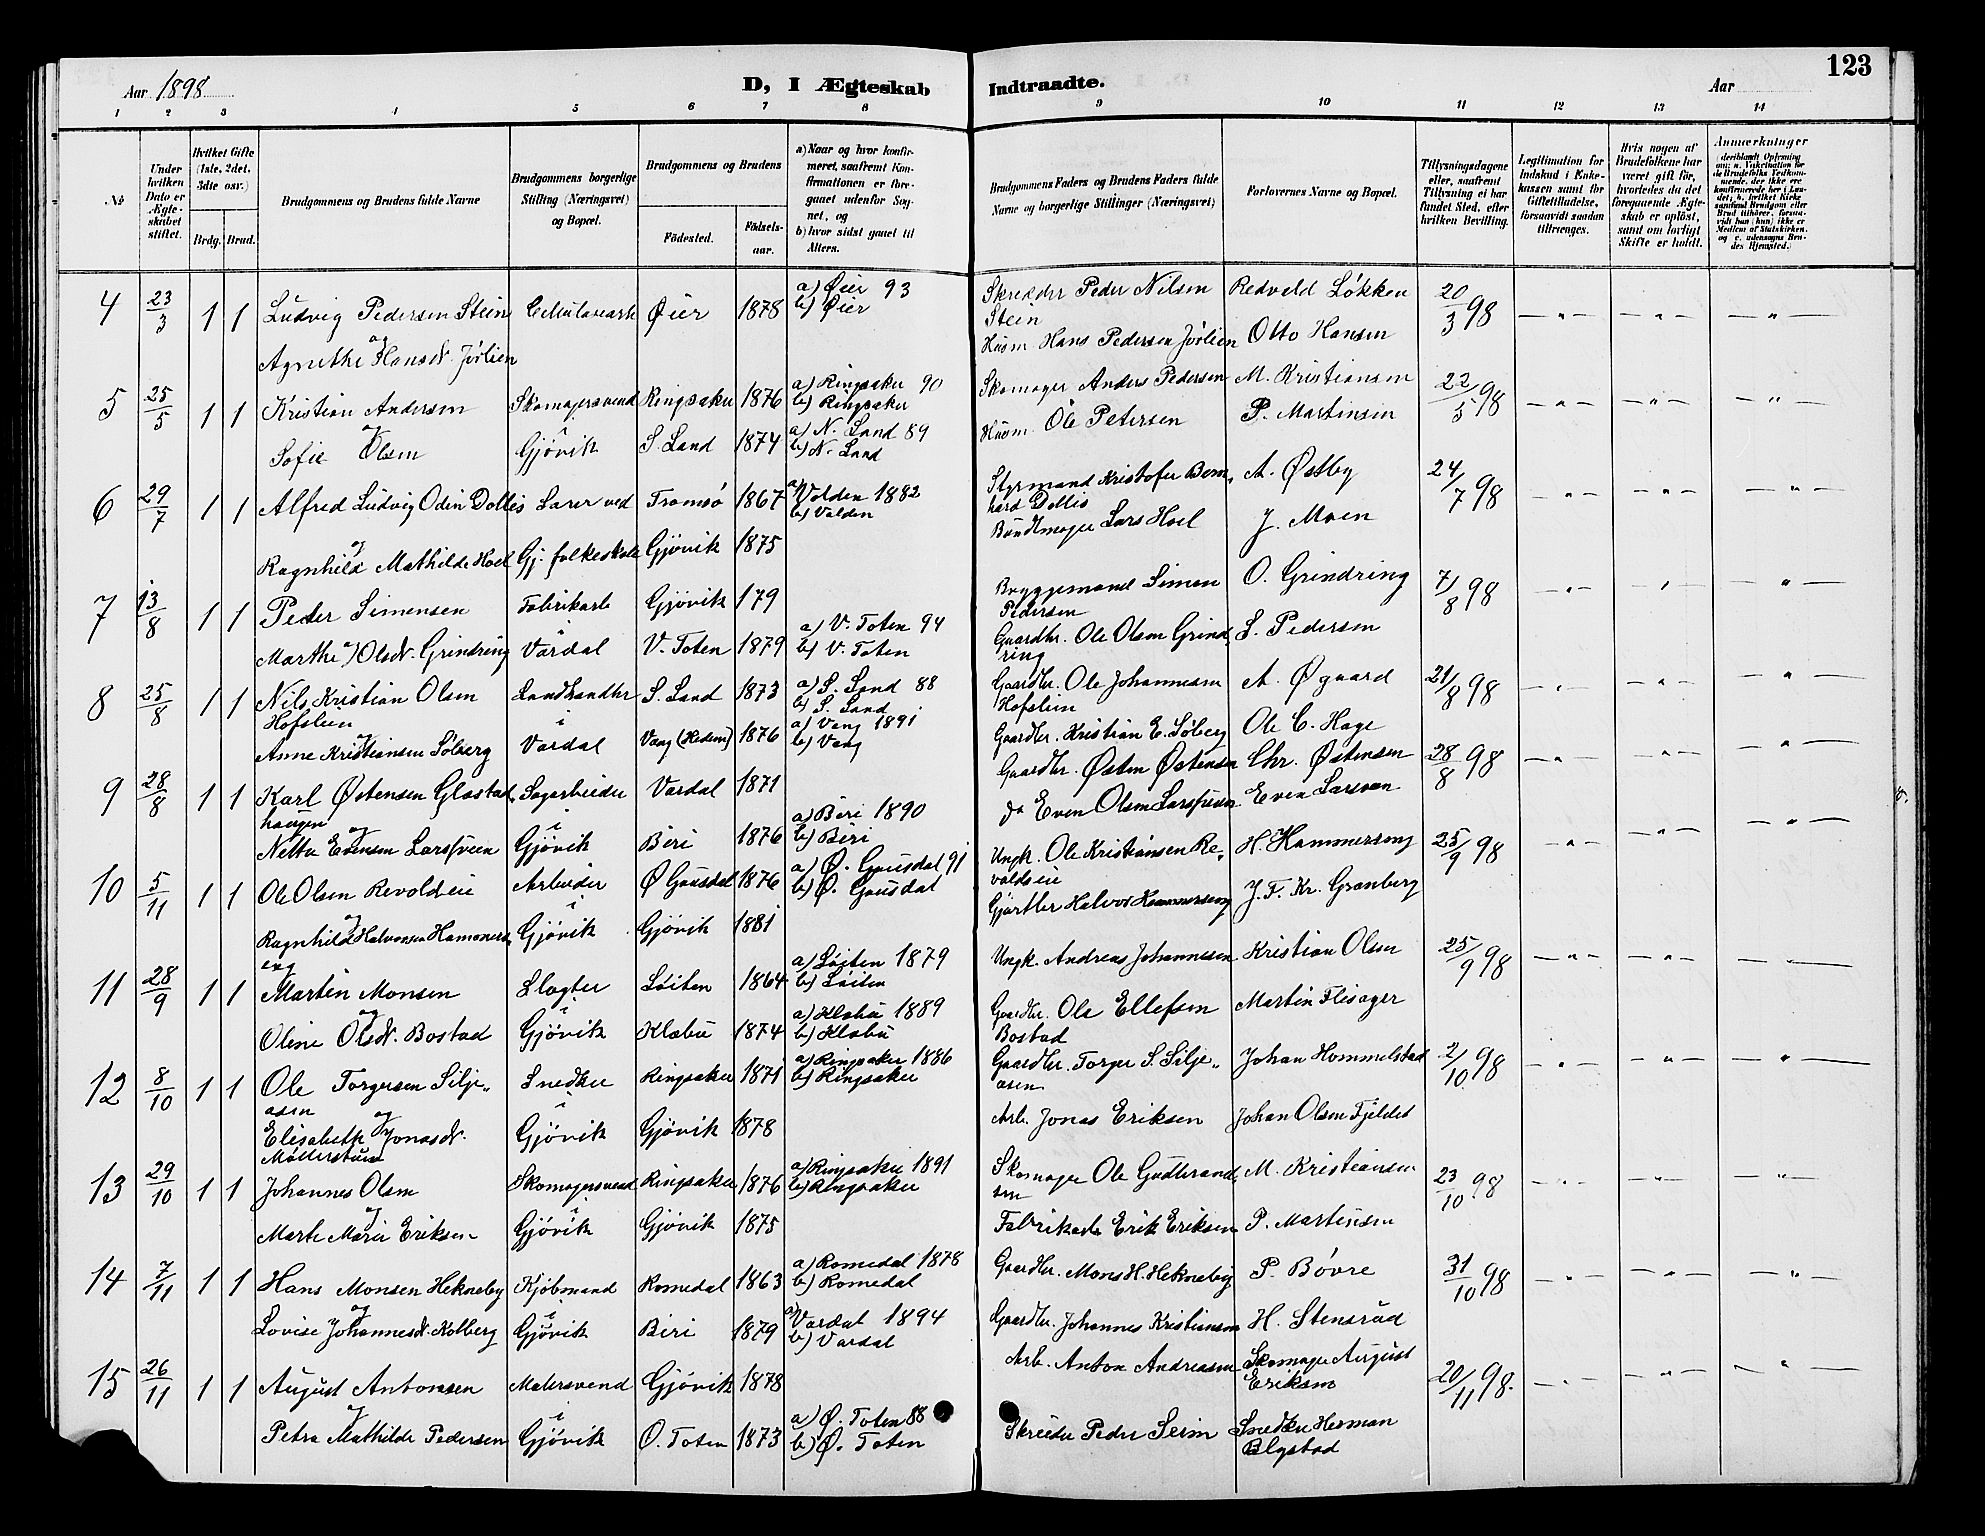 Aar 1898
D, I Ægteskab Indtraadte.
Aar
123
1 2 3 4 5 6 7 8 9 10 11 12 13 14
No
Under hvilken Dato er Ægteskabet stiftet.
Hvilket Gifte (1ste, 2det, 3dte osv.)
Brdg. Brud.
Brudgommens og Brudens fulde Navne
Brudgommens borgerlige Stilling (Næringsvei) og Bopæl.
Brudgommens og Brudens
Födested.
Födselsaar.
a) Naar og hvor konfirmeret, saafremt Konfirmationen er foregaaet udenfor Sognet, og
b) hvor sidst gaaet til Alters.
Brudgommens Faders og Brudens Faders fulde Navne og borgerlige Stillinger (Næringsvei)
Forlovernes Navne og Bopæl.
Tillysningsdagene eller, saafremt Tillysning ei har fundet Sted, efter hvilken Bevilling.
Legitimation for Indskud i Enkekassen samt for Giftetilladelse, forsaavidt saadan tiltrænges.
Hvis nogen af Brudefolkene har været gift för, hvorledes da det foregaaende Ægteskab er oplöst, samt om lovligt Skifte er holdt.
Anmærkninger
4 23/3 1 1 Ludvig Pedersen Stein Øier 1878 a) Øier 93 b) Øier Skrædder Peder Nilsen Stein Redveld Løkken 20/3 98
og
Agnethe Hansdt. Jörlien Husm Hans Pedersen Jörlien Otto Hansen
5 25/5 1 1 Kristian Andersen Skomagersvend Ringsaker 1876 a) Ringsaker 90 b) Ringsaker Skomager Anders Pedersen M. Kristiansen 22/5 98
og i
Sofie Olsen Gjövik S. Land 1874 a) N. Land 89 b) N. Land Husm Ole Petersen P. Martinsen
6 29/7 1 1 Alfred Ludvig Odin Dollis Lærer ved Tromsö 1867 a) Volden 1882 b) Volden Styrmand Kristofer Bernhard Dollis A. Østby 24/7 98
og
Ragnhild Mathilde Hoel Gj. folkeskole Gjövik 1875 Bundtmager Lars Hoel J. Moen
7 13/8 1 1 Peder Simensen Fabrikarb Gjövik 179 Bryggemand Simen Pedersen O. Grindring 7/8 98
og i
Marthe Olsdt. Grindring Vardal V. Toten 1879 a) V. Toten 94 b) V. Toten Gaardbr. Ole Olsen Grindring S. Pedersen
8 25/8 1 1 Nils Kristian Olsen Hofslien Landhandler S. Land 1873 a) S. Land 88 b) S. Land Gaardbr. Ole Johannesen Hofslein A. Øgaard 21/8 98
og i
Anne Kristiansen Söberg Vardal Vang (Hedem) 1876 a) Vang 1891 b) Vang Gaardbr. Kristian E. Söberg Ole C. Hage
9 28/8 1 1 Karl Østensen Glæstadhaugen Sagarbeider Vardal 1871 Gaardbr. Østen Østensen Chr. Østensen 28/8 98
og i
Netta Evensen Larsfveen Gjövik Biri 1876 a) Biri 1890 b) Biri do Even Olsen Larsfveen Even Larsveen
10 5/11 1 1 Ole Olsen Revoldseie Arbeider Ø Gausdal 1876 a) Ø. Gausdal 91 b) Ø. Gausdal Ungk. Ole Kristiansen Revoldseie H. Hammerseng 25/9 98
og i
Ragnhild Halvorsen Hammerseng Gjövik Gjövik 1881 Gjörtler Halvor Hammerseng J. F. Kr. Granberg
11 28/9 1 1 Martin Monsen Slagter Löiten 1864 a) Löiten 1879 b) Löiten Ungk. Andreas Johannesen Kristian Olsen 25/9 98
og i
Oline Olsdt. Bostad Gjövik Klæbu 1874 a) Klæbu 1889 b) Klæbu Gaardbr. Ole Ellefsen Bostad Martin Flisager
12 8/10 1 1 Ole Torgersen Siljeasen Snedker Ringsaker 1871 a) Ringsaker 1886 b) Ringsaker Gaardbr. Torger S. Siljeasen Johan Hommelstad 2/10 98
og i
Elisabeth Jonasdt. Möllerstuen Gjövik Gjövik 1878 Arb. Jonas Eriksen Johan Olsen Fjeldet
13 29/10 1 1 Johannes Olsen Skomagersvend Ringsaker 1876 a) Ringsaker 1891 b) Ringsaker Skomager Ole Gudbrandsen M. Kristiansen 23/10 98
og i
Marte Marie Eriksen Gjövik Gjövik 1875 Fabrikarb Erik Eriksen P. Martinsen
14 7/11 1 1 Hans Monsen Hekneby Kjöbmand Romedal 1863 a) Romedal 1878 b) Romedal Gaardbr. Mons H. Hekneby P. Bövre 31/10 98
og i
Lovise Johannesdt. Kolberg Gjövik Biri 1879 a) Vardal 1894 b) Vardal Gaardbr. Johannes Kristiansen H. Stensrud
15 26/11 1 1 August Antonsen Malersvend Gjövik 1878 Arb. Anton Andreasen Skomager August Eriksen 20/11 98.
og i
Petra Mathilde Pedersen Gjövik Ø. Toten 1873 a) Ø. Toten 88 b) Ø. Toten Skræder Peder Seim Snedker Herman Blystad